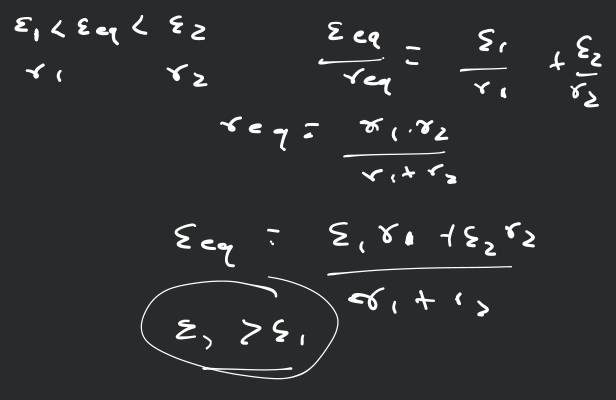 ε₁ < ε eq < ε₂
r₁ r₂
ε eq / r eq = ε₁ / r₁ + ε₂ / r₂
r eq = r₁ . r₂ / r₁ + r₂
ε eq = ε₁ r₁ + ε₂ r₂ / r₁ + r₂
ε₂ > ε₁